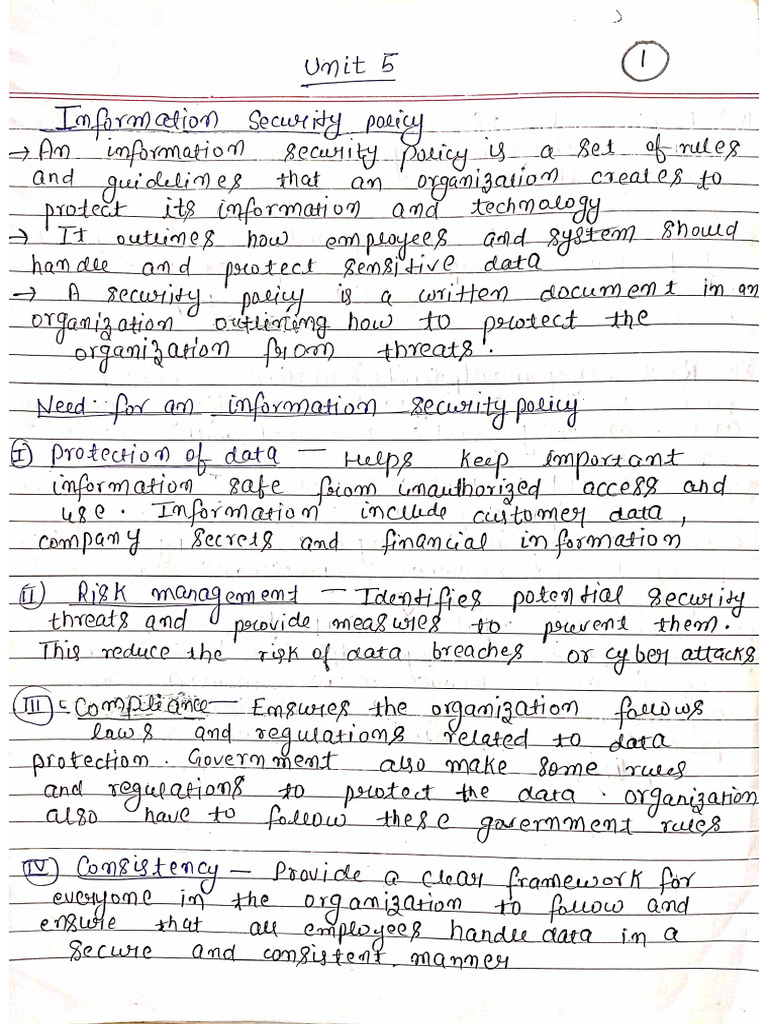 Unit 5
1
Information Security policy
→ An information security policy is a set of rules
and guidelines that an organization creates to
protect its information and technology
→ It outlines how employees and system should
handle and protect sensitive data
→ A security policy is a written document in an
organization outlining how to protect the
organization from threats.
Need for an information security policy
I) protection of data — Helps keep important
information safe from unauthorized access and
use. Information include customer data,
company secrets and financial information
II) Risk management — Identifies potential security
threats and provide measures to prevent them.
This reduce the risk of data breaches or cyber attacks
III) Compliance — Ensures the organization follows
laws and regulations related to data
protection. Government also make some rules
and regulations to protect the data. organization
also have to follow these government rules
IV) Consistency — Provide a clear framework for
everyone in the organization to follow and
ensure that all employees handle data in a
secure and consistent manner